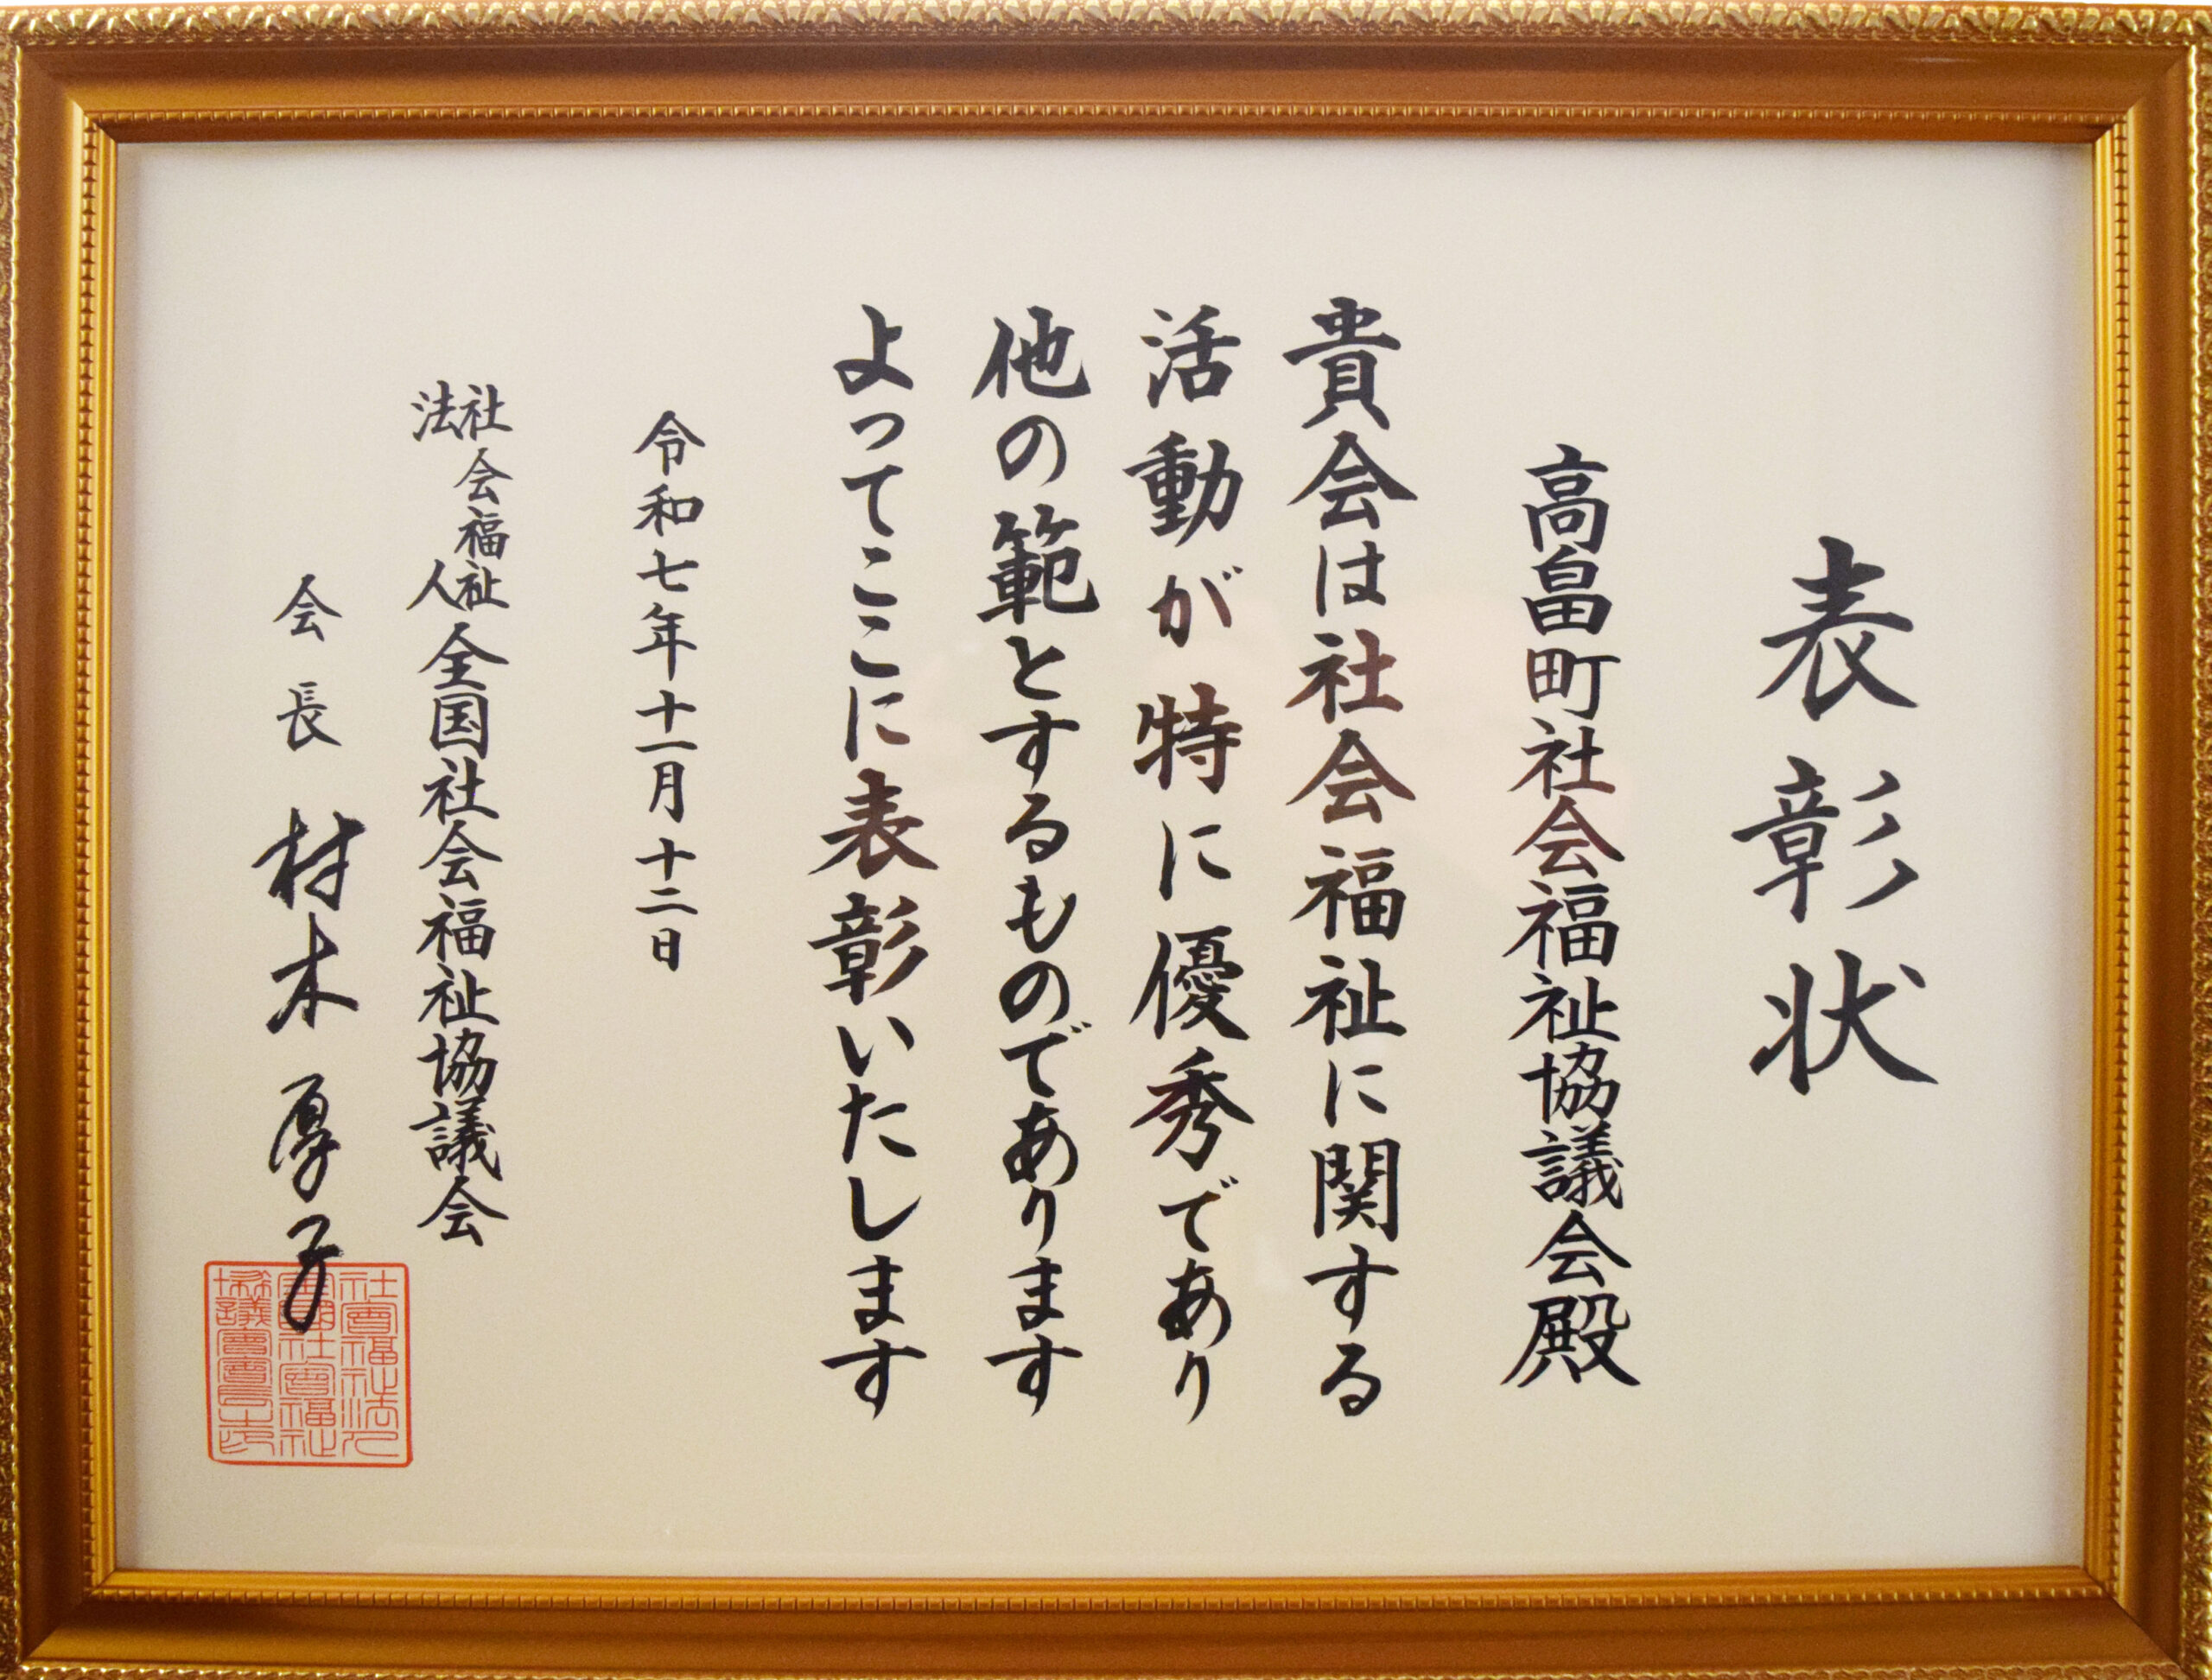 表彰状
高畠町社会福祉協議会殿
貴会は社会福祉に関する
活動が特に優秀であり
他の範とするものであります
よってここに表彰いたします
令和七年十一月十二日
社会福祉法人全国社会福祉協議会
会長 村木厚子
社會福祉法人
全國社會福祉
協議會會長之印